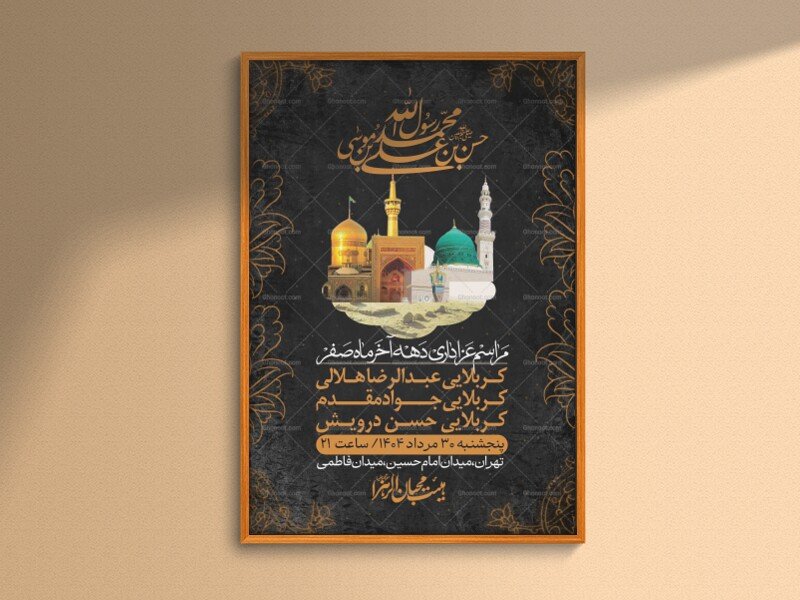 محمد رسول الله
حسن بن علی
علی بن موسی
مراسم عزاداری دهه آخر ماه صفر
کربلایی عبدالرضا هلالی
کربلایی جواد مقدم
کربلایی حسن درویش
پنجشنبه ۳۰ مرداد ۱۴۰۴/ ساعت ۲۱
تهران،میدان امام حسین،میدان فاطمی
هیئت محبان الزهرا
Ghonoot.com